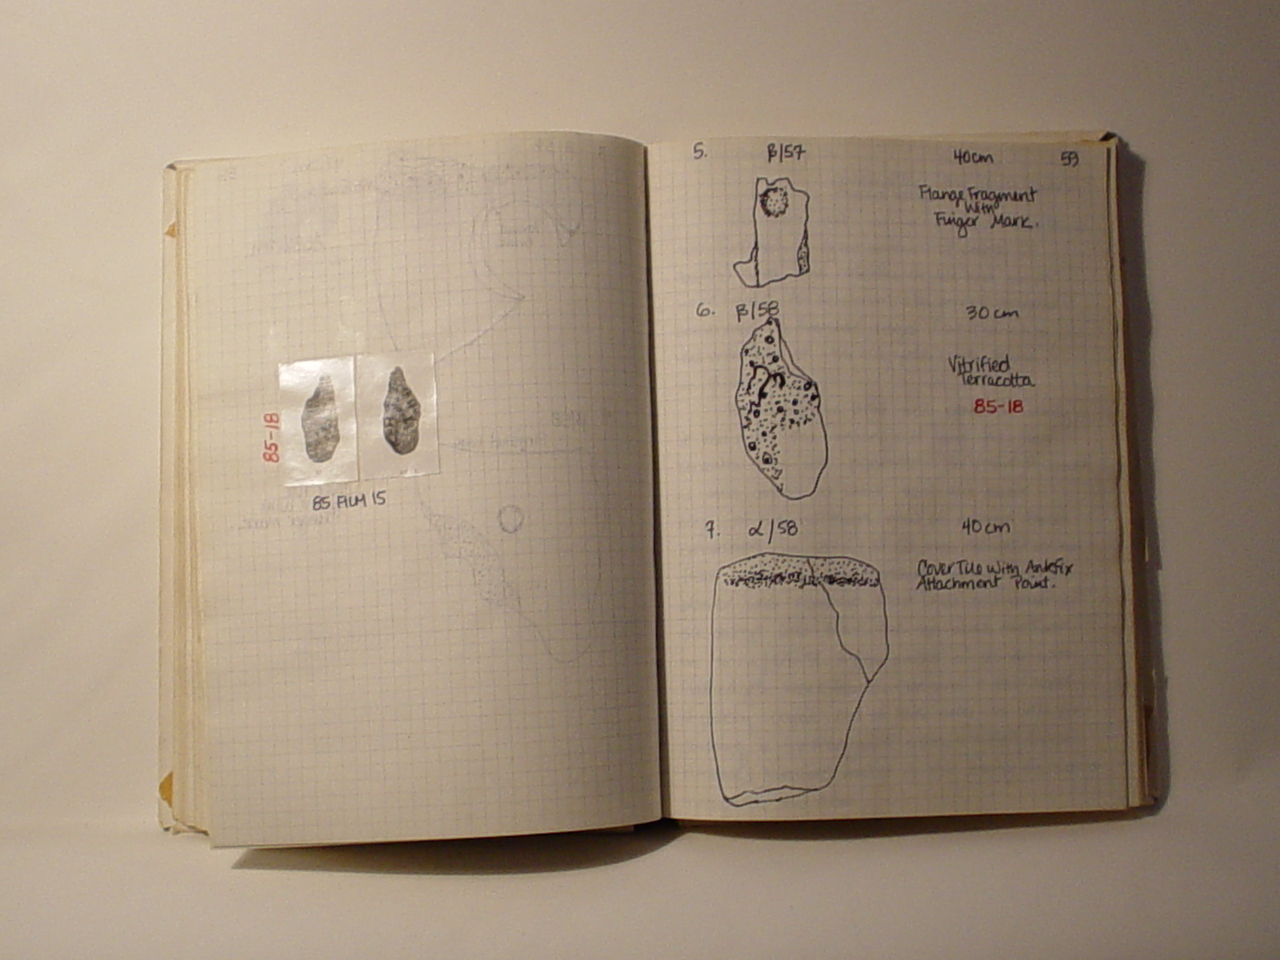 85-18
85 FILM 15
5. β/57 40cm 59
Flange Fragment
With
Finger Mark.
6. β/58 30 cm
Vitrified
Terracotta
85-18
7. α/58 40cm
Cover Tile With Antefix
Attachment Point.